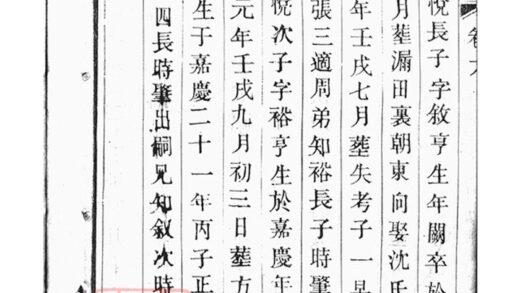 卷六
悅長子字敘亨生年闕卒於
月葬漏田裏朝東向娶沈氏
年壬戌七月葬失考子一早
張三適周弟知裕長子時肇
悅次子字裕亨生於嘉慶年
元年壬戌九月初三日葬方
生于嘉慶二十一年丙子正
四長時肇出嗣兄知敘次時